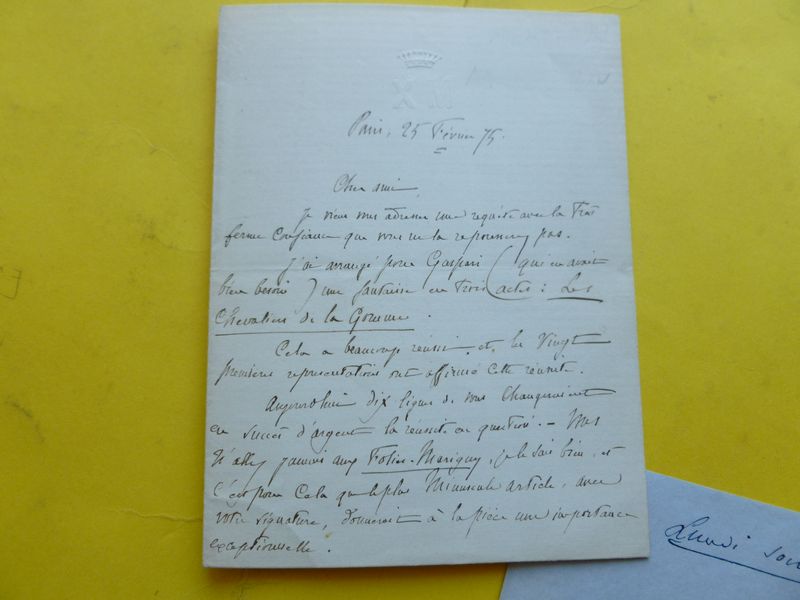 Paris, 25 Février 75.
Cher ami,
Je viens vous adresser une requête avec la très
ferme confiance que vous ne la repousserez pas.
J'ai arrangé pour Gaspari (qui en avait
bien besoin) une fantaisie en trois actes : Les
Chevaliers de la Gomme.
Cela a beaucoup réussi, et les vingt
premières représentations ont affirmé cette réussite.
Aujourd'hui dix lignes de vous changeraient
en succès d'argent la réussite en question. – Vous
n'allez jamais aux Folies-Marigny, je le sais bien, et
c'est pour cela que le plus minuscule article, avec
votre signature, donnerait à la pièce une importance
exceptionnelle.
Lundi soir